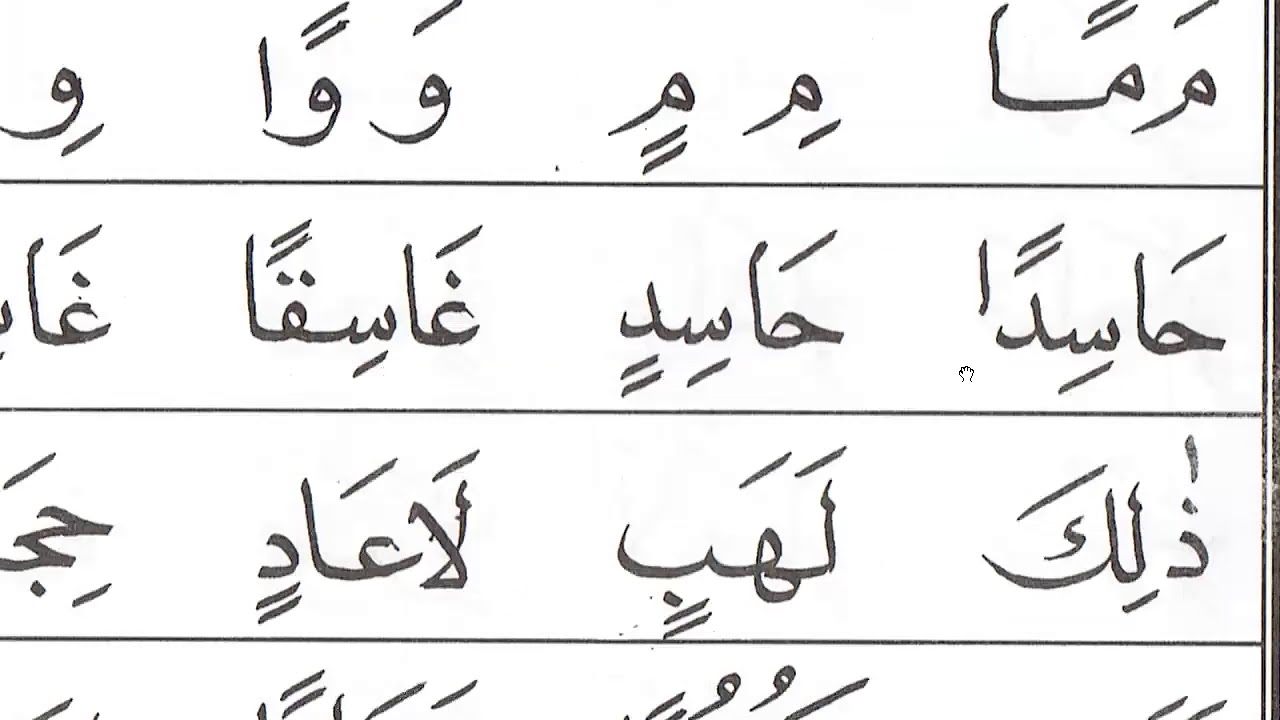 مَ مًا مِ مٍ وَ وًا وِ
حَاسِدًا حَاسِدٍ غَاسِقًا
ذٰلِكَ لَهَبٍ لَاعَادٍ